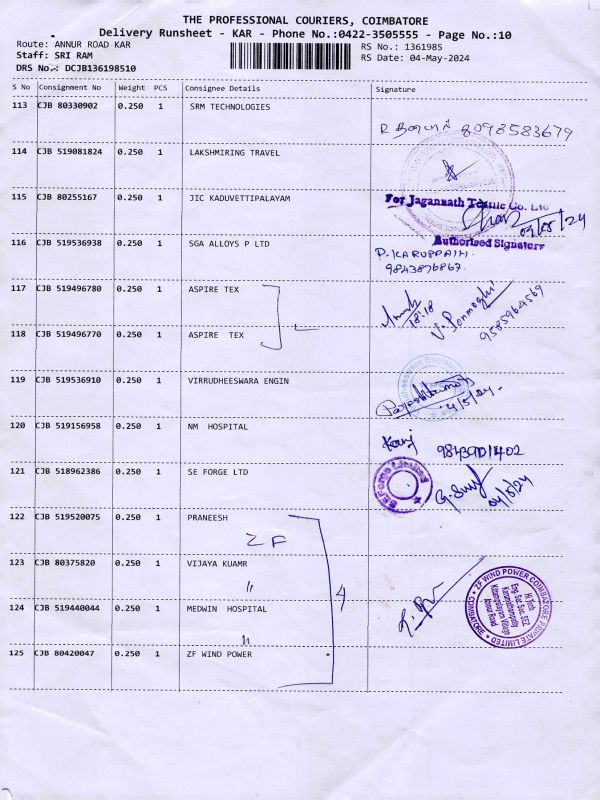 THE PROFESSIONAL COURIERS, COIMBATORE
Delivery Runsheet - KAR - Phone No.:0422-3505555 - Page No.:10
Route: ANNUR ROAD KAR
Staff: SRI RAM
DRS No.: DCJB136198510
RS No.: 1361985
RS Date: 04-May-2024
S No Consignment No Weight PCS Consignee Details Signature
113 CJB 80330902 0.250 1 SRM TECHNOLOGIES
8098583679
114 CJB 519081824 0.250 1 LAKSHMIRING TRAVEL
115 CJB 80255167 0.250 1 JIC KADUVETTIPALAYAM
For Jagannath Textile Co. Ltd
04/05/24
Authorised Signatory
116 CJB 519536938 0.250 1 SGA ALLOYS P LTD
P. KARUPPAIH.
9843876867.
117 CJB 519496780 0.250 1 ASPIRE TEX
18:18
V. Ponmoghi
9585964569
118 CJB 519496770 0.250 1 ASPIRE TEX
119 CJB 519536910 0.250 1 VIRRUDHEESWARA ENGIN
4/5/24.
120 CJB 519156958 0.250 1 NM HOSPITAL
9843901402
121 CJB 518962386 0.250 1 SE FORGE LTD
SEForge Limited
04/5/24
122 CJB 519520075 0.250 1 PRANEESH
ZF
123 CJB 80375820 0.250 1 VIJAYA KUAMR
"
4
124 CJB 519440044 0.250 1 MEDWIN HOSPITAL
"
125 CJB 80420047 0.250 1 ZF WIND POWER
ZF WIND POWER COIMBATORE PRIVATE LIMITED
COIMBATORE
Hi Tech
Eng. Sec. SEZ
Karumathampatty
Kittampalayam Village
Annur Road